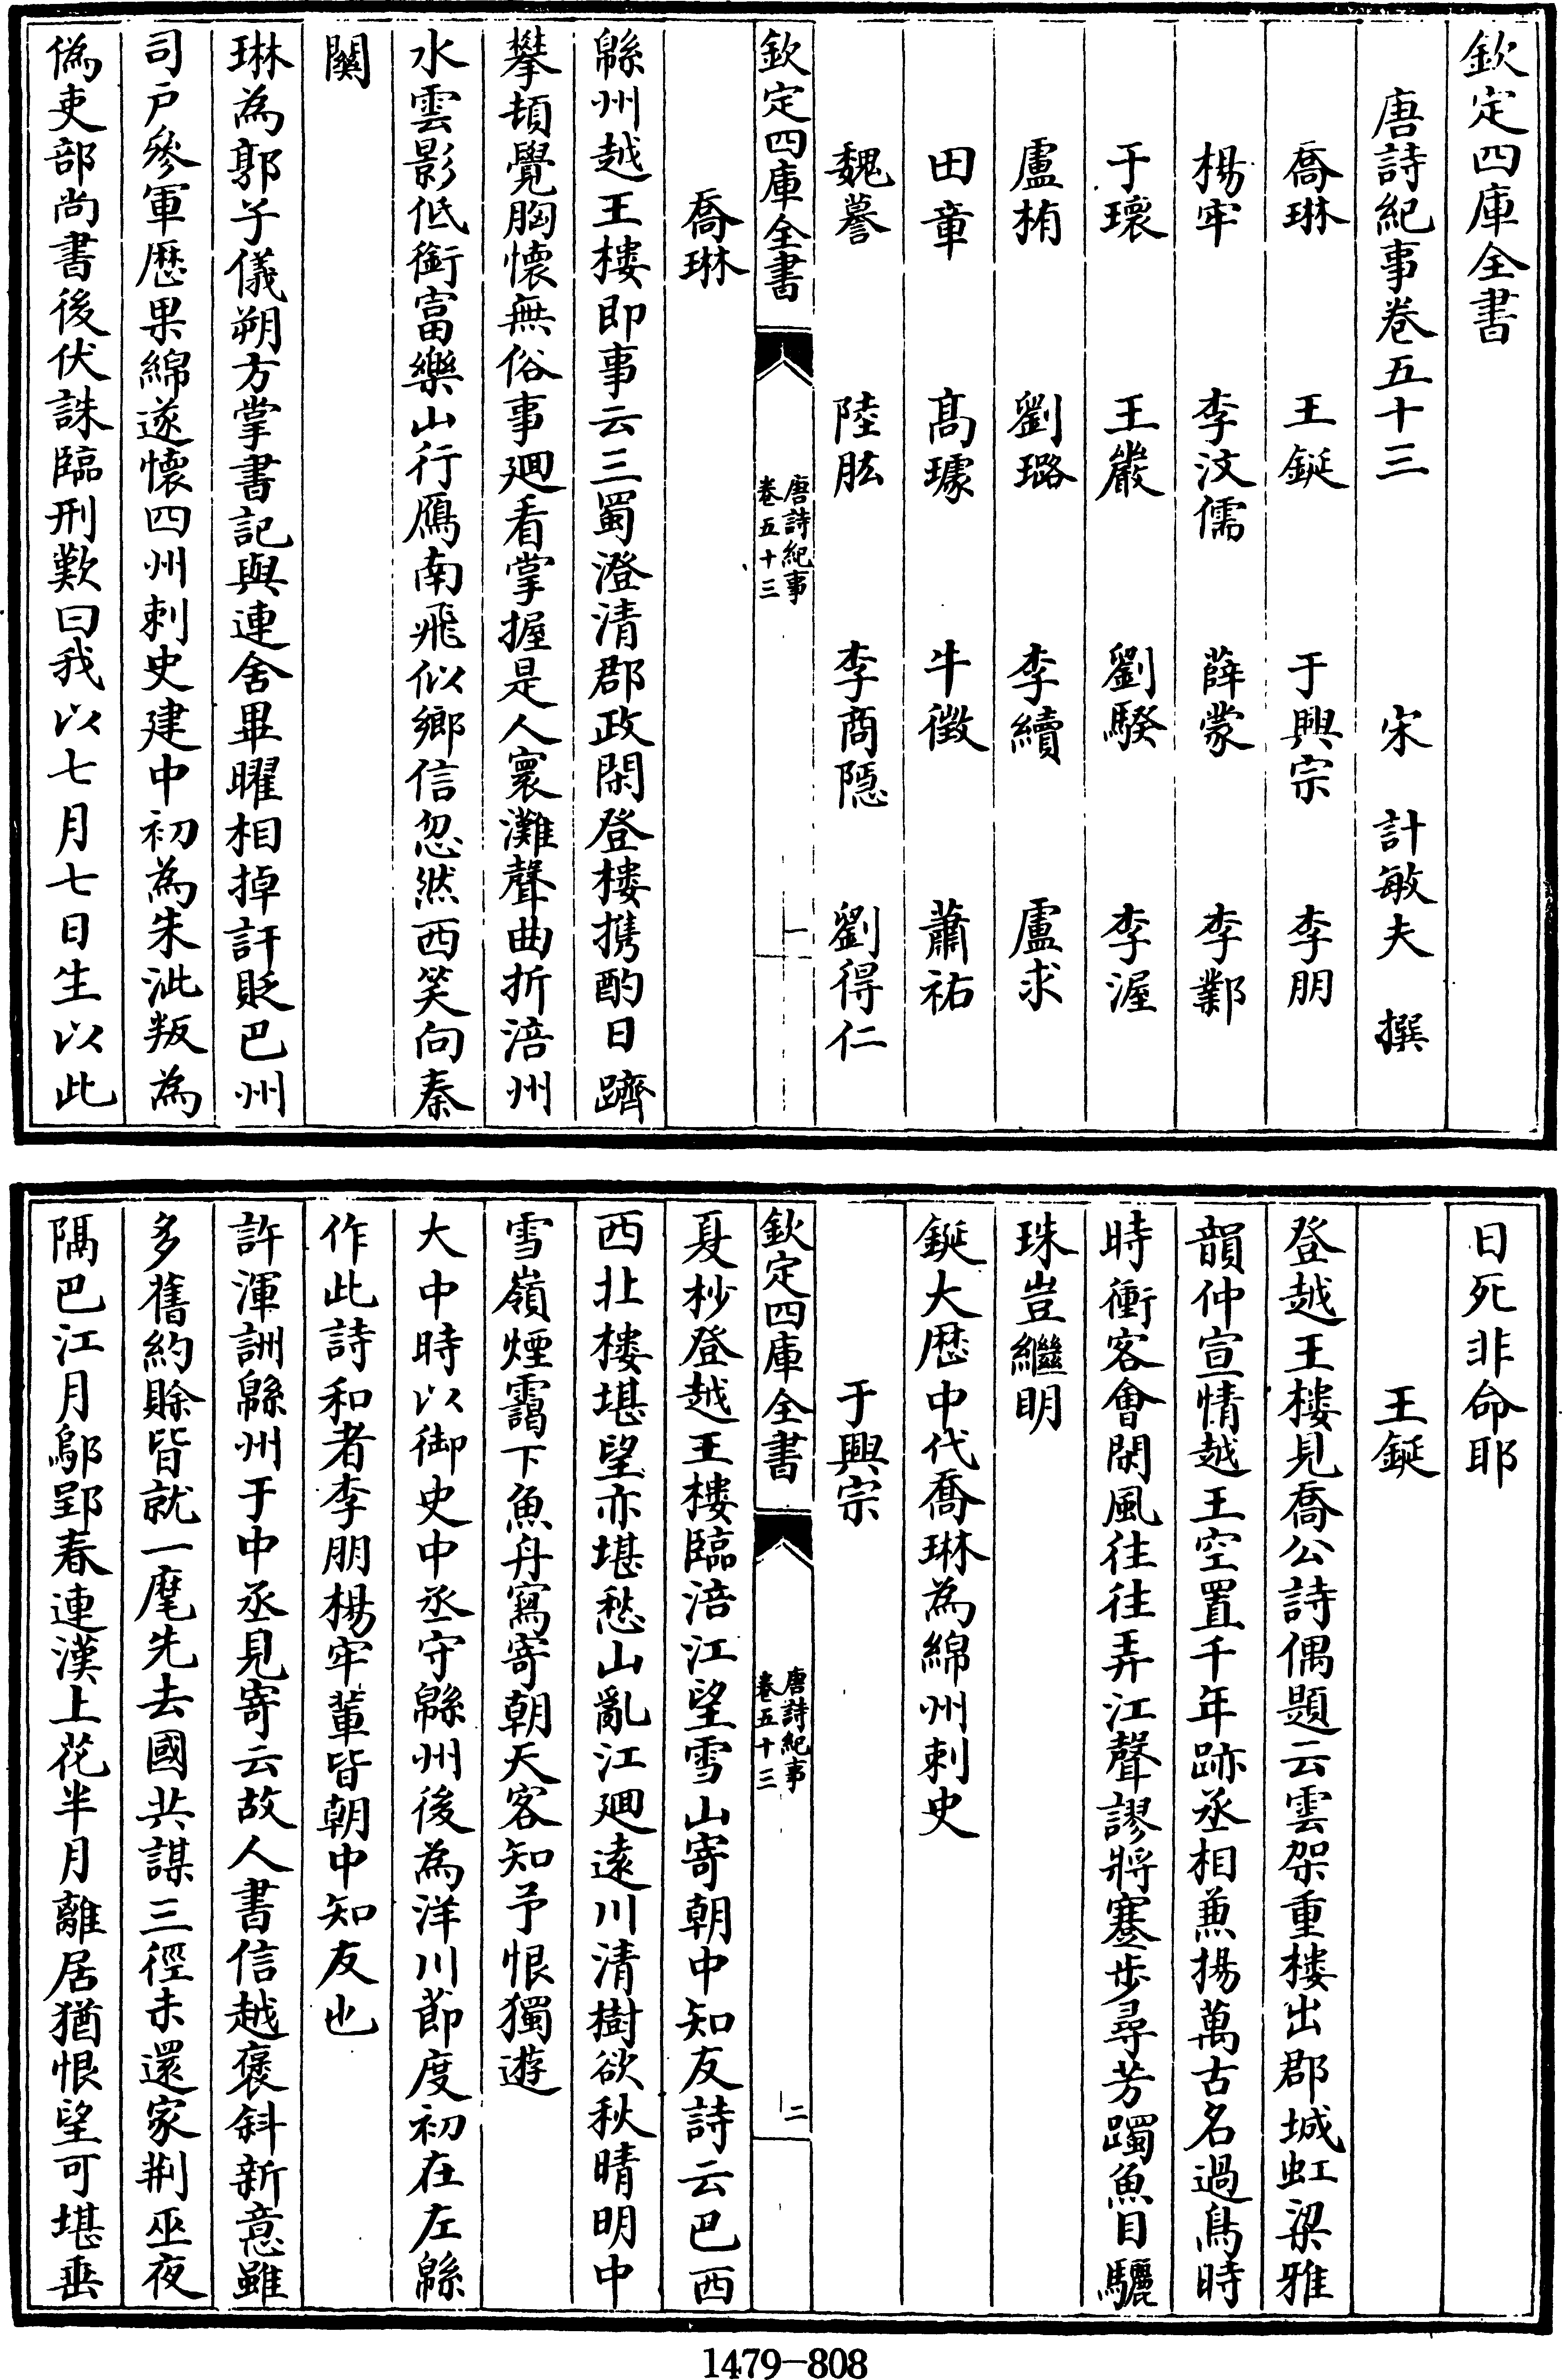 欽定四庫全書
唐詩紀事卷五十三　宋　計敏夫　撰
喬琳　王鋋　于興宗　李朋
楊牢　李汶儒　薛蒙　李鄴
于瓌　王嚴　劉騤　李渥
盧栯　劉璐　李續　盧求
田章　髙璩　牛徵　蕭祐
魏謩　陸肱　李商隱　劉得仁
欽定四庫全書　唐詩紀事卷五十三　一
喬琳
緜州越王樓即事云三蜀澄清郡政閑登樓攜酌日躋
攀頓覺胸懷無俗事廻看掌握是人寰灘聲曲折涪州
水雲影低銜富樂山行鴈南飛似鄉信忽然西笑向秦
關
琳為郭子儀朔方掌書記與連舍畢曜相掉訐貶巴州
司戶參軍歷果綿遂懷四州刺史建中初為朱泚叛為
偽吏部尚書後伏誅臨刑歎曰我以七月七日生以此
日死非命耶
王鋋
登越王樓見喬公詩偶題云雲架重樓出郡城虹梁雅
韻仲宣情越王空置千年跡丞相兼揚萬古名過鳥時
時衝客會閑風往往弄江聲謬將蹇步尋芳躅魚目驪
珠豈繼明
鋋大歷中代喬琳為綿州刺史
于興宗
欽定四庫全書　唐詩紀事卷五十三　二
夏杪登越王樓臨涪江望雪山寄朝中知友詩云巴西
西北樓堪望亦堪愁山亂江廻遠川清樹欲秋晴明中
雪嶺煙靄下魚舟寫寄朝天客知予恨獨遊
大中時以御史中丞守緜州後為洋川節度初在左緜
作此詩和者李朋楊牢輩皆朝中知友也
許渾詶緜州于中丞見寄云故人書信越褒斜新意雖
多舊約賒皆就一麾先去國共謀三徑未還家荆巫夜
隔巴江月鄢郢春連漢上花半月離居猶恨望可堪垂
1479-808